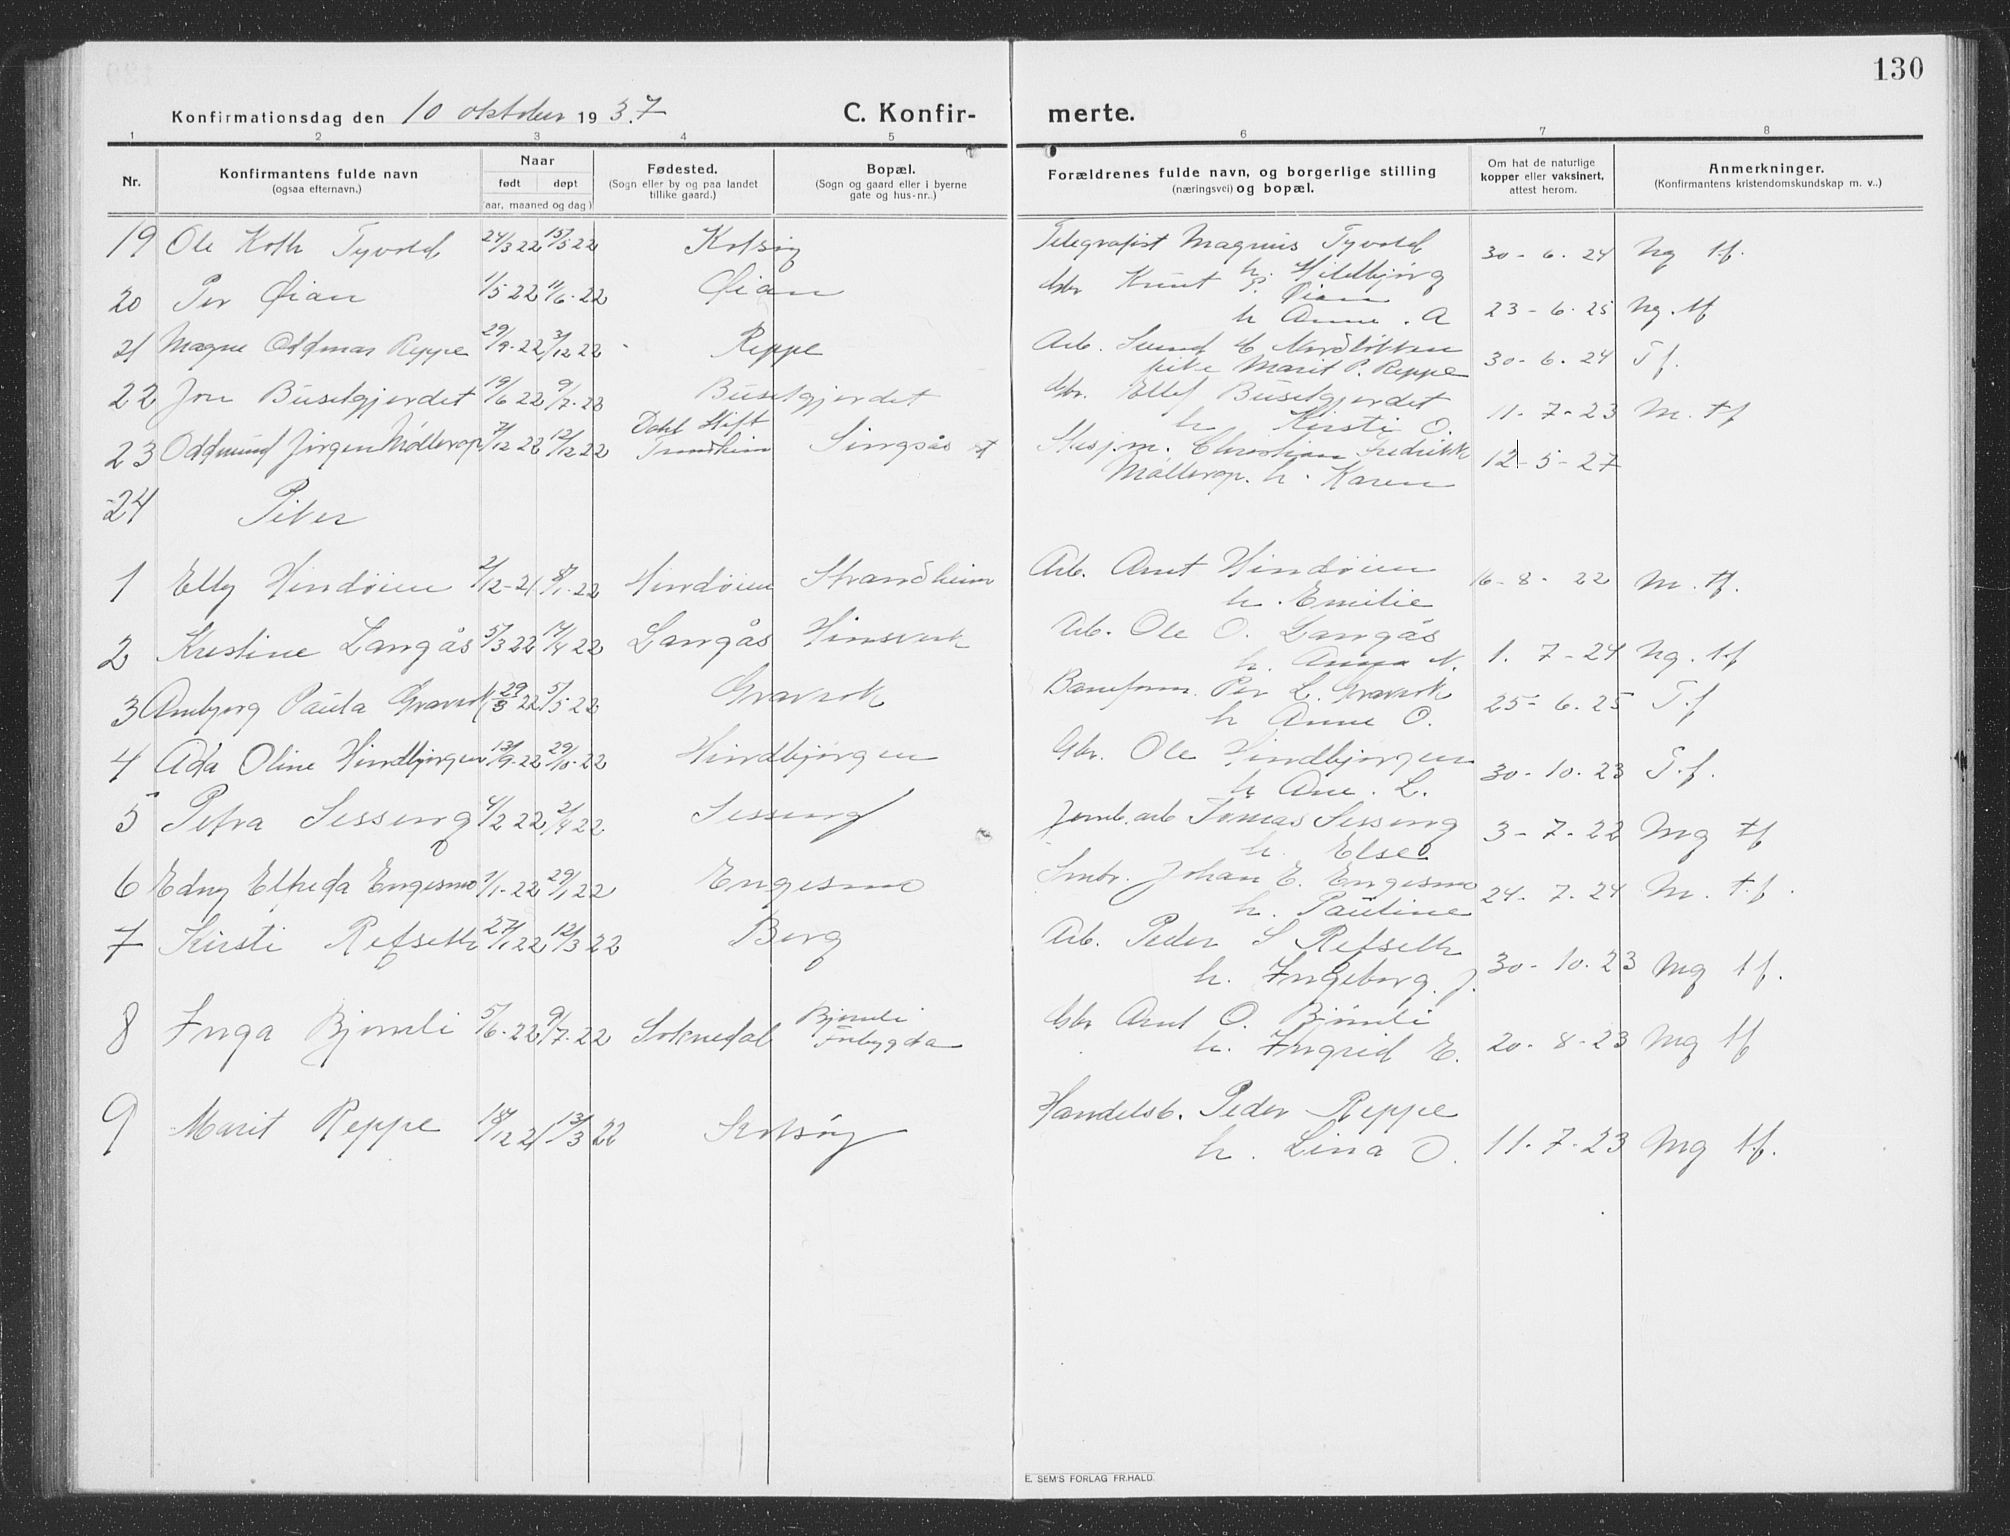 130
Konfirmationsdag den 10 oktober 1937 C. Konfir- merte.
1 2 3 4 5 6 7 8
Nr. Konfirmantens fulde navn (ogsaa efternavn.) Naar født døpt (aar, maaned og dag) Fødested. (Sogn eller by og paa landet tillike gaard.) Bopæl. (Sogn og gaard eller i byerne gate og hus-nr..) Forældrenes fulde navn, og borgerlige stilling (næringsvei) og bopæl. Om hat de naturlige kopper eller vaksinert, attest herom. Anmerkninger. (Konfirmantens kristendomskundskap m. v..)
19 Ole Koth Tyvold 24/3 22 15/5 22 Kotsøy Telegrafist Magnus Tyvold 30-6.24 Mg tf.
h. Hildbjørg
20 Per Øian 1/5 22 11/6.22 Øian Gbr Knut P. Øian 23-6.25 Mg. tf
h Anne . A
21 Magne Oddmar Reppe 29/9.22 3/12 22 Reppe Arb. Svend E Nordløkken 30-6.24 T f.
pike Marit P. Reppe
22 Jon Busetgjerdet 19/6 22 9/7.22 Busetgjerdet Gbr. Ellef Busetgjerdet 11-7-23 M. tf
h Kirsti O.
23 Oddmund Jørgen Møllerop 7/12 22 12/12 22 Dahl Stift Trondheim Singsås st Stasj.m. Christian Fredrikk 12-5-27
Møllerop. h. Karen
24 Piker
1 Elby Hindøien 2/12-21 8/1.22 Hindøien Strandheim Arb. Arnt Hindøien 16-8-22 M. tf.
h. Emilie
2 Kristine Langås 5/3 22 17/4 22 Langås Hinsverk Arb. Ole O. Langås 1.7-24 Mg. tf
h. Anna N.
3 Ambjørg Paula Gravrok 29/3 22 5/5.22 Gravrok Baneform. Per L. Gravrok 25-6.25 T.f
h Anne O.
4 Ada Oline Hindbjørgen 13/9.22 29/10.22 Hindbjørgen Gbr. Ole Hindbjørgen 30-10.23 T.f.
h Ane . L.
5 Petra Sesseng 4/2 22 2/4 22 Sesseng Jernb.arb Tomas Sesseng 3-7-22 Mg tf
h. Else
6 Edny Elfrida Engesmo 1/1-22 29/1 22 Engesmo Smbr. Johan E. Engesmo 24.7.24 M. t.f.
h. Pauline
7 Kirsti Refseth 27/1 22 12/3 22 Berg Arb. Peder S Refseth 30-10.23 Mg tf.
h. Ingeborg. J.
8 Inga Bjømli 5/6.22 9/7.22 Soknedal Bjømli Forbygda Gbr Arnt O. Bjømli 20-8-23 Mg tf
h. Ingrid E.
9 Marit Reppe 18/12 21 13/3 22 Kotsøy Handelsb. Peder Reppe 11.7.23 Mg tf.
h. Lina O.
E. SEM'S FORLAG FR.HALD.